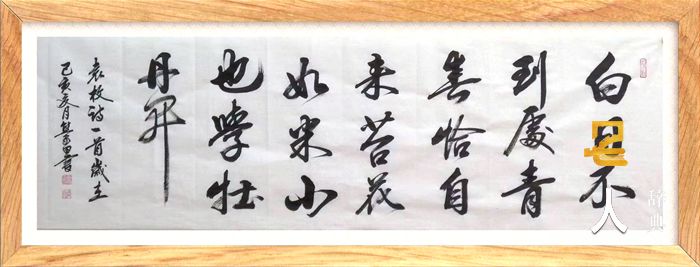 白日不
到處青
春恰自
来苔花
如米小
也學牡
丹開
袁枚詩一首歲在
己亥 月 書
人
辞典